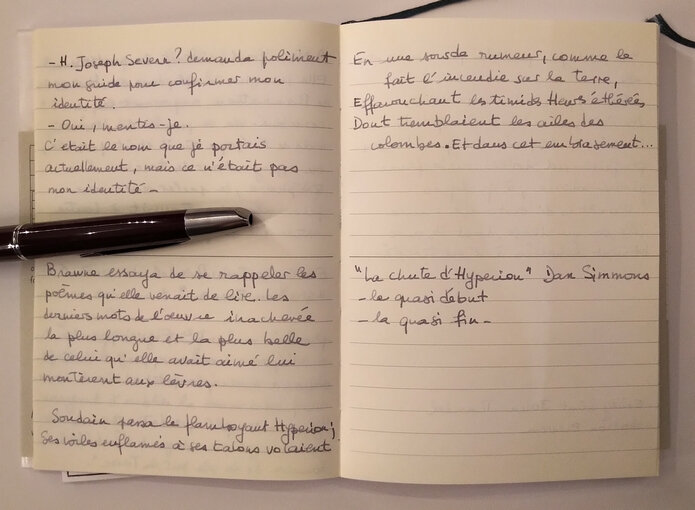 - H. Joseph Severn? demanda poliment
mon guide pour confirmer mon
identité.
- Oui, mentis-je.
C'était le nom que je portais
actuellement, mais ce n'était pas
mon identité -
Brawne essaya de se rappeler les
poèmes qu'elle venait de lire. Les
derniers mots de l'œuvre inachevée
la plus longue et la plus belle
de celui qu'elle avait aimé lui
montèrent aux lèvres.
Soudain passa le flamboyant Hyperion;
Ses voiles enflamés à ses talons volaient
En une sourde rumeur, comme le
fait l'incendie sur la terre,
Effarouchant les timides Heures éthérées
Dont tremblaient les ailes des
colombes. Et dans cet embrasement...
"La chute d'Hyperion" Dan Simmons
- le quasi début
- la quasi fin -